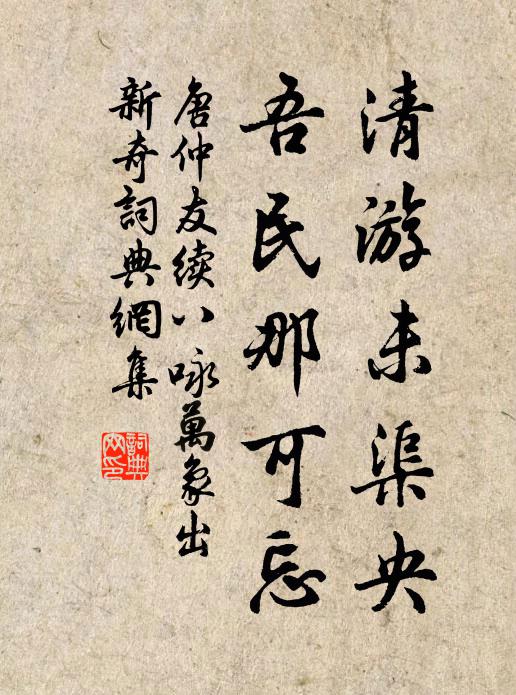 清游未渠央
吾民那可忘
唐仲友续八咏萬象出
新奇詞典網集
詞典
网印